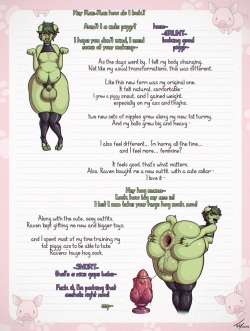 Hey Rae-Rae how do I look?
Aren't I a cute piggy?
I hope you don't mind, I used some of your makeup~
hmm~
~GRUNT~
looking good piggy~
As the days went by, I felt my body changing.
Not like my usual transformations, this was different.
Like this new form was my original one.
It felt natural, comfortable
I grew a piggy snout, and I gained weight, especially on my ass and thighs.
two new sets of nipples grew along my new fat tummy.
And my balls grew big and heavy
I also feel different... In horny all the time and I feel more... feminine?
It feels good, that's what matters.
Also, Raven bought me a new outfit, with a cute collar~
I love it~
Hey hog mama~
Look how big my ass is!
I bet I can take your huge hog cock now!
Along with the cute, sexy outfits, Raven kept gifting me new and bigger toys,
and I spent most of my time training my fat piggy ass to be able to take Ravens huge hog cock.
~SNORT~
that's a nice gape babe~
Fuck, ill, I'm packing that asshole right now!